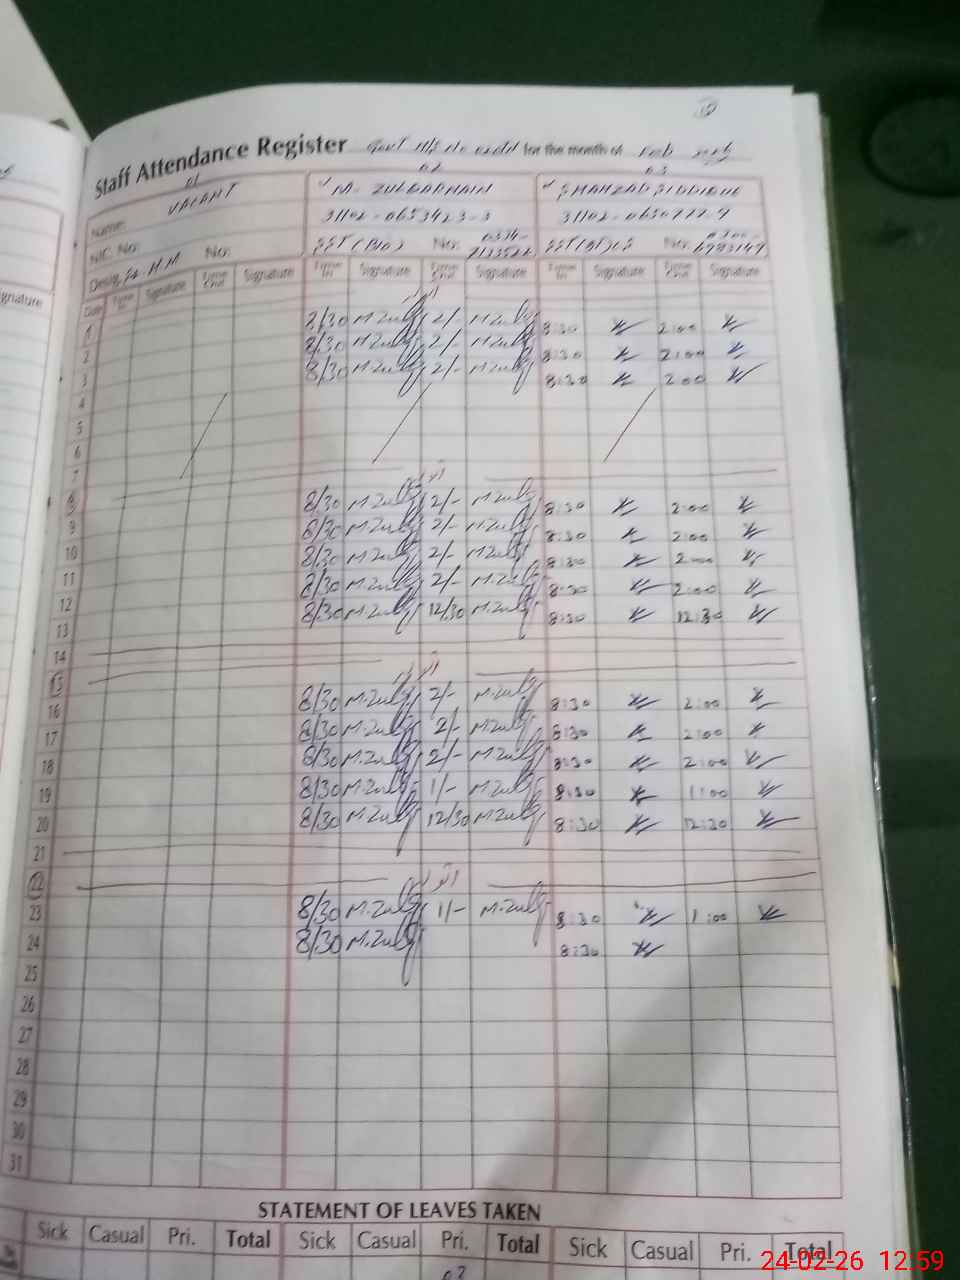 Staff Attendance Register Govt H/S for the month of Feb 2026
01 02 03
Name: VACANT M. ZULQARNAIN SHAHZAD SIDDIQUE
NIC. No: 31102-0653423-3
Desig. No: SST (Bio) No: No:
Date Time In Signature Time Out Signature Time In Signature Time Out Signature Time In Signature Time Out Signature
1 اتوار
2 8/30 M.Zulq 2/- M.Zulq 8:30 2:00
3 8/30 M.Zulq 2/- M.Zulq 8:30 2:00
4 8/30 M.Zulq 2/- M.Zulq 8:30 2:00
5
6
7
8 اتوار
9 8/30 M.Zulq 2/- M.Zulq 8:30 2:00
10 8/30 M.Zulq 2/- M.Zulq 8:30 2:00
11 8/30 M.Zulq 2/- M.Zulq 8:30 2:00
12 8/30 M.Zulq 2/- M.Zulq 8:30 2:00
13 8/30 M.Zulq 12/30 M.Zulq 8:30 12:30
14
15 اتوار
16 8/30 M.Zulq 2/- M.Zulq 8:30 2:00
17 8/30 M.Zulq 2/- M.Zulq 8:30 2:00
18 8/30 M.Zulq 2/- M.Zulq 8:30 2:00
19 8/30 M.Zulq 1/- M.Zulq 8:30 1:00
20 8/30 M.Zulq 12/30 M.Zulq 8:30 12:30
21
22 اتوار
23 8/30 M.Zulq 1/- M.Zulq 8:30 1:00
24 8/30 M.Zulq 8:30
25
26
27
28
29
30
31
STATEMENT OF LEAVES TAKEN
Sick Casual Pri. Total Sick Casual Pri. Total Sick Casual Pri. Total
24-02-26 12:59